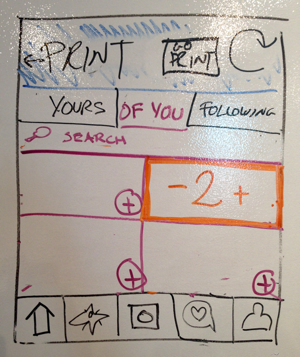 ←PRINT GO PRINT
YOURS OF YOU FOLLOWING
SEARCH
- 2 +
+
+ +